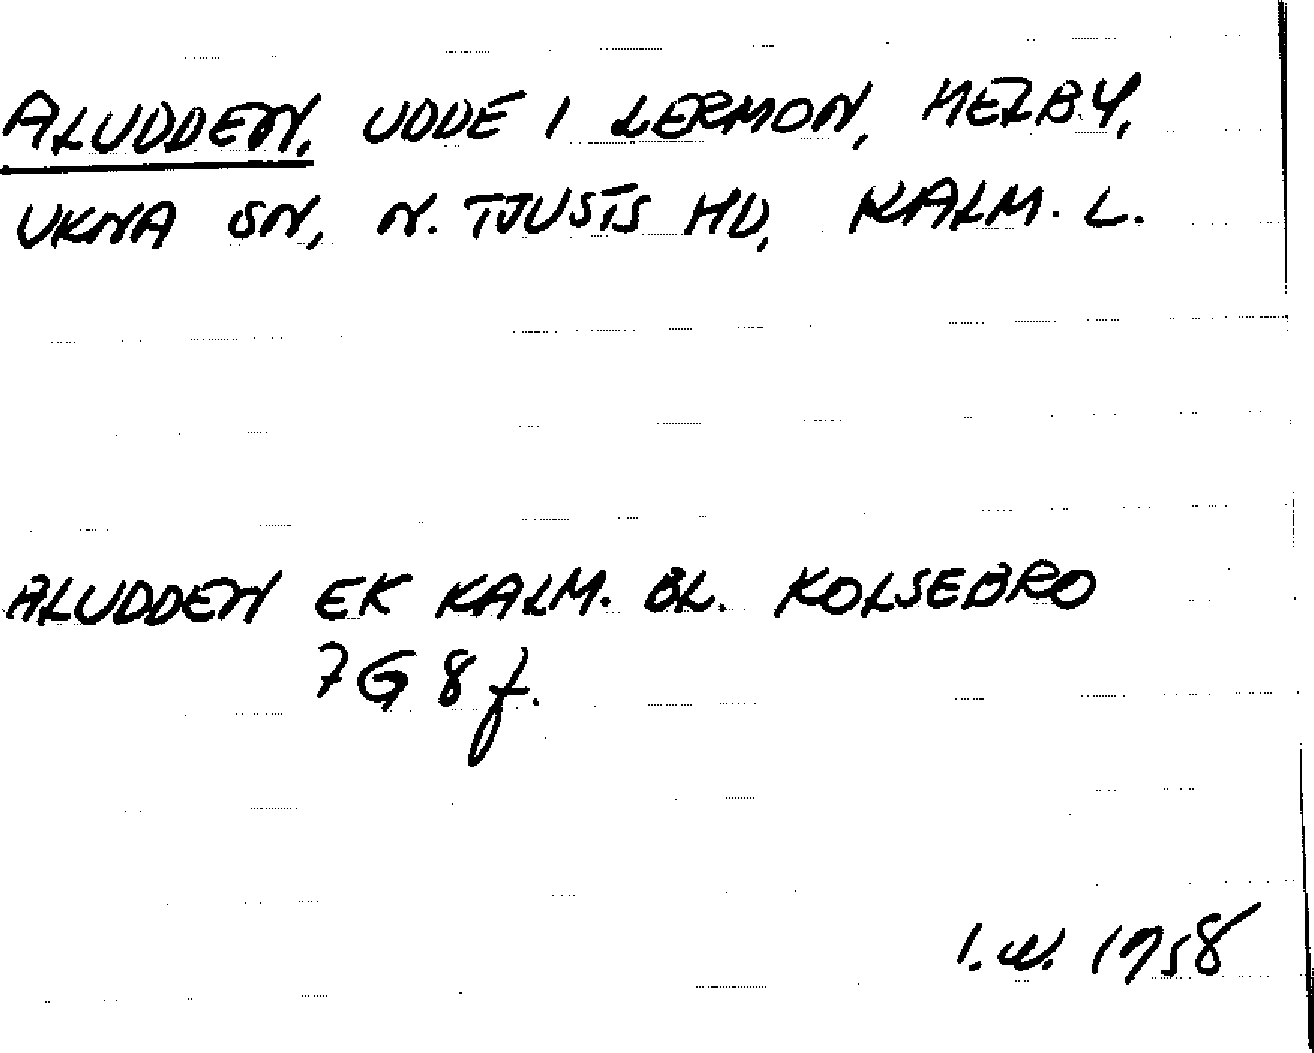 ALUDDEN, UDDE I LERMON, HELBY,
UKNA SN, N. TJUSTS HD, KALM. L.
ALUDDEN EK KALM. BL. KOLSEBRO
7G 8f.
I.W. 1958